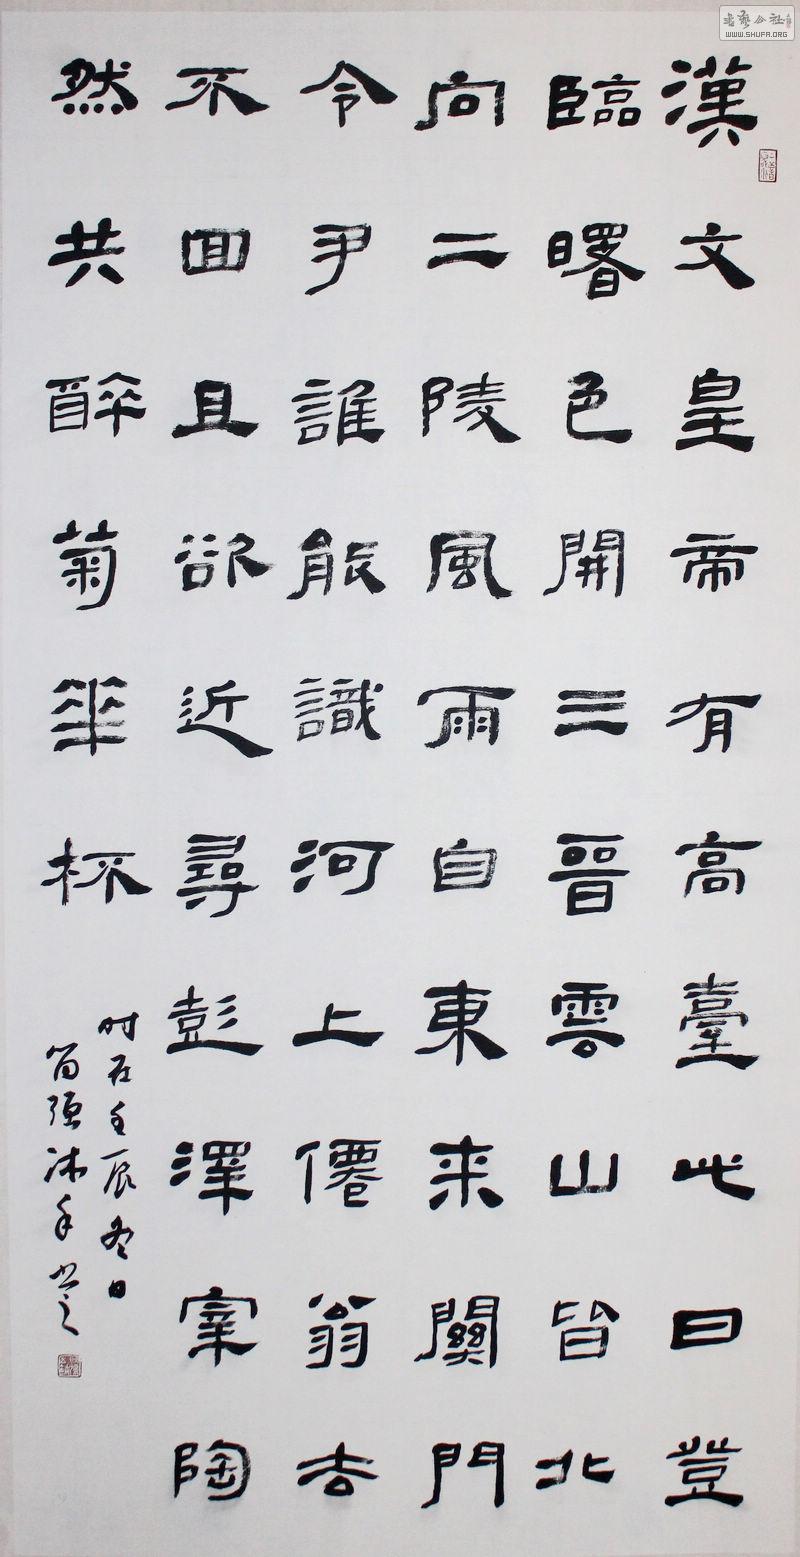 漢文皇帝有高臺此日登
臨曙色開三晉雲山皆北
向二陵風雨自東来關門
令尹誰能識河上僊翁去
不回且欲近尋彭澤宰陶
然共醉菊華杯
时在壬辰冬日
强沐手书之
书艺公社
WWW.SHUFA.ORG